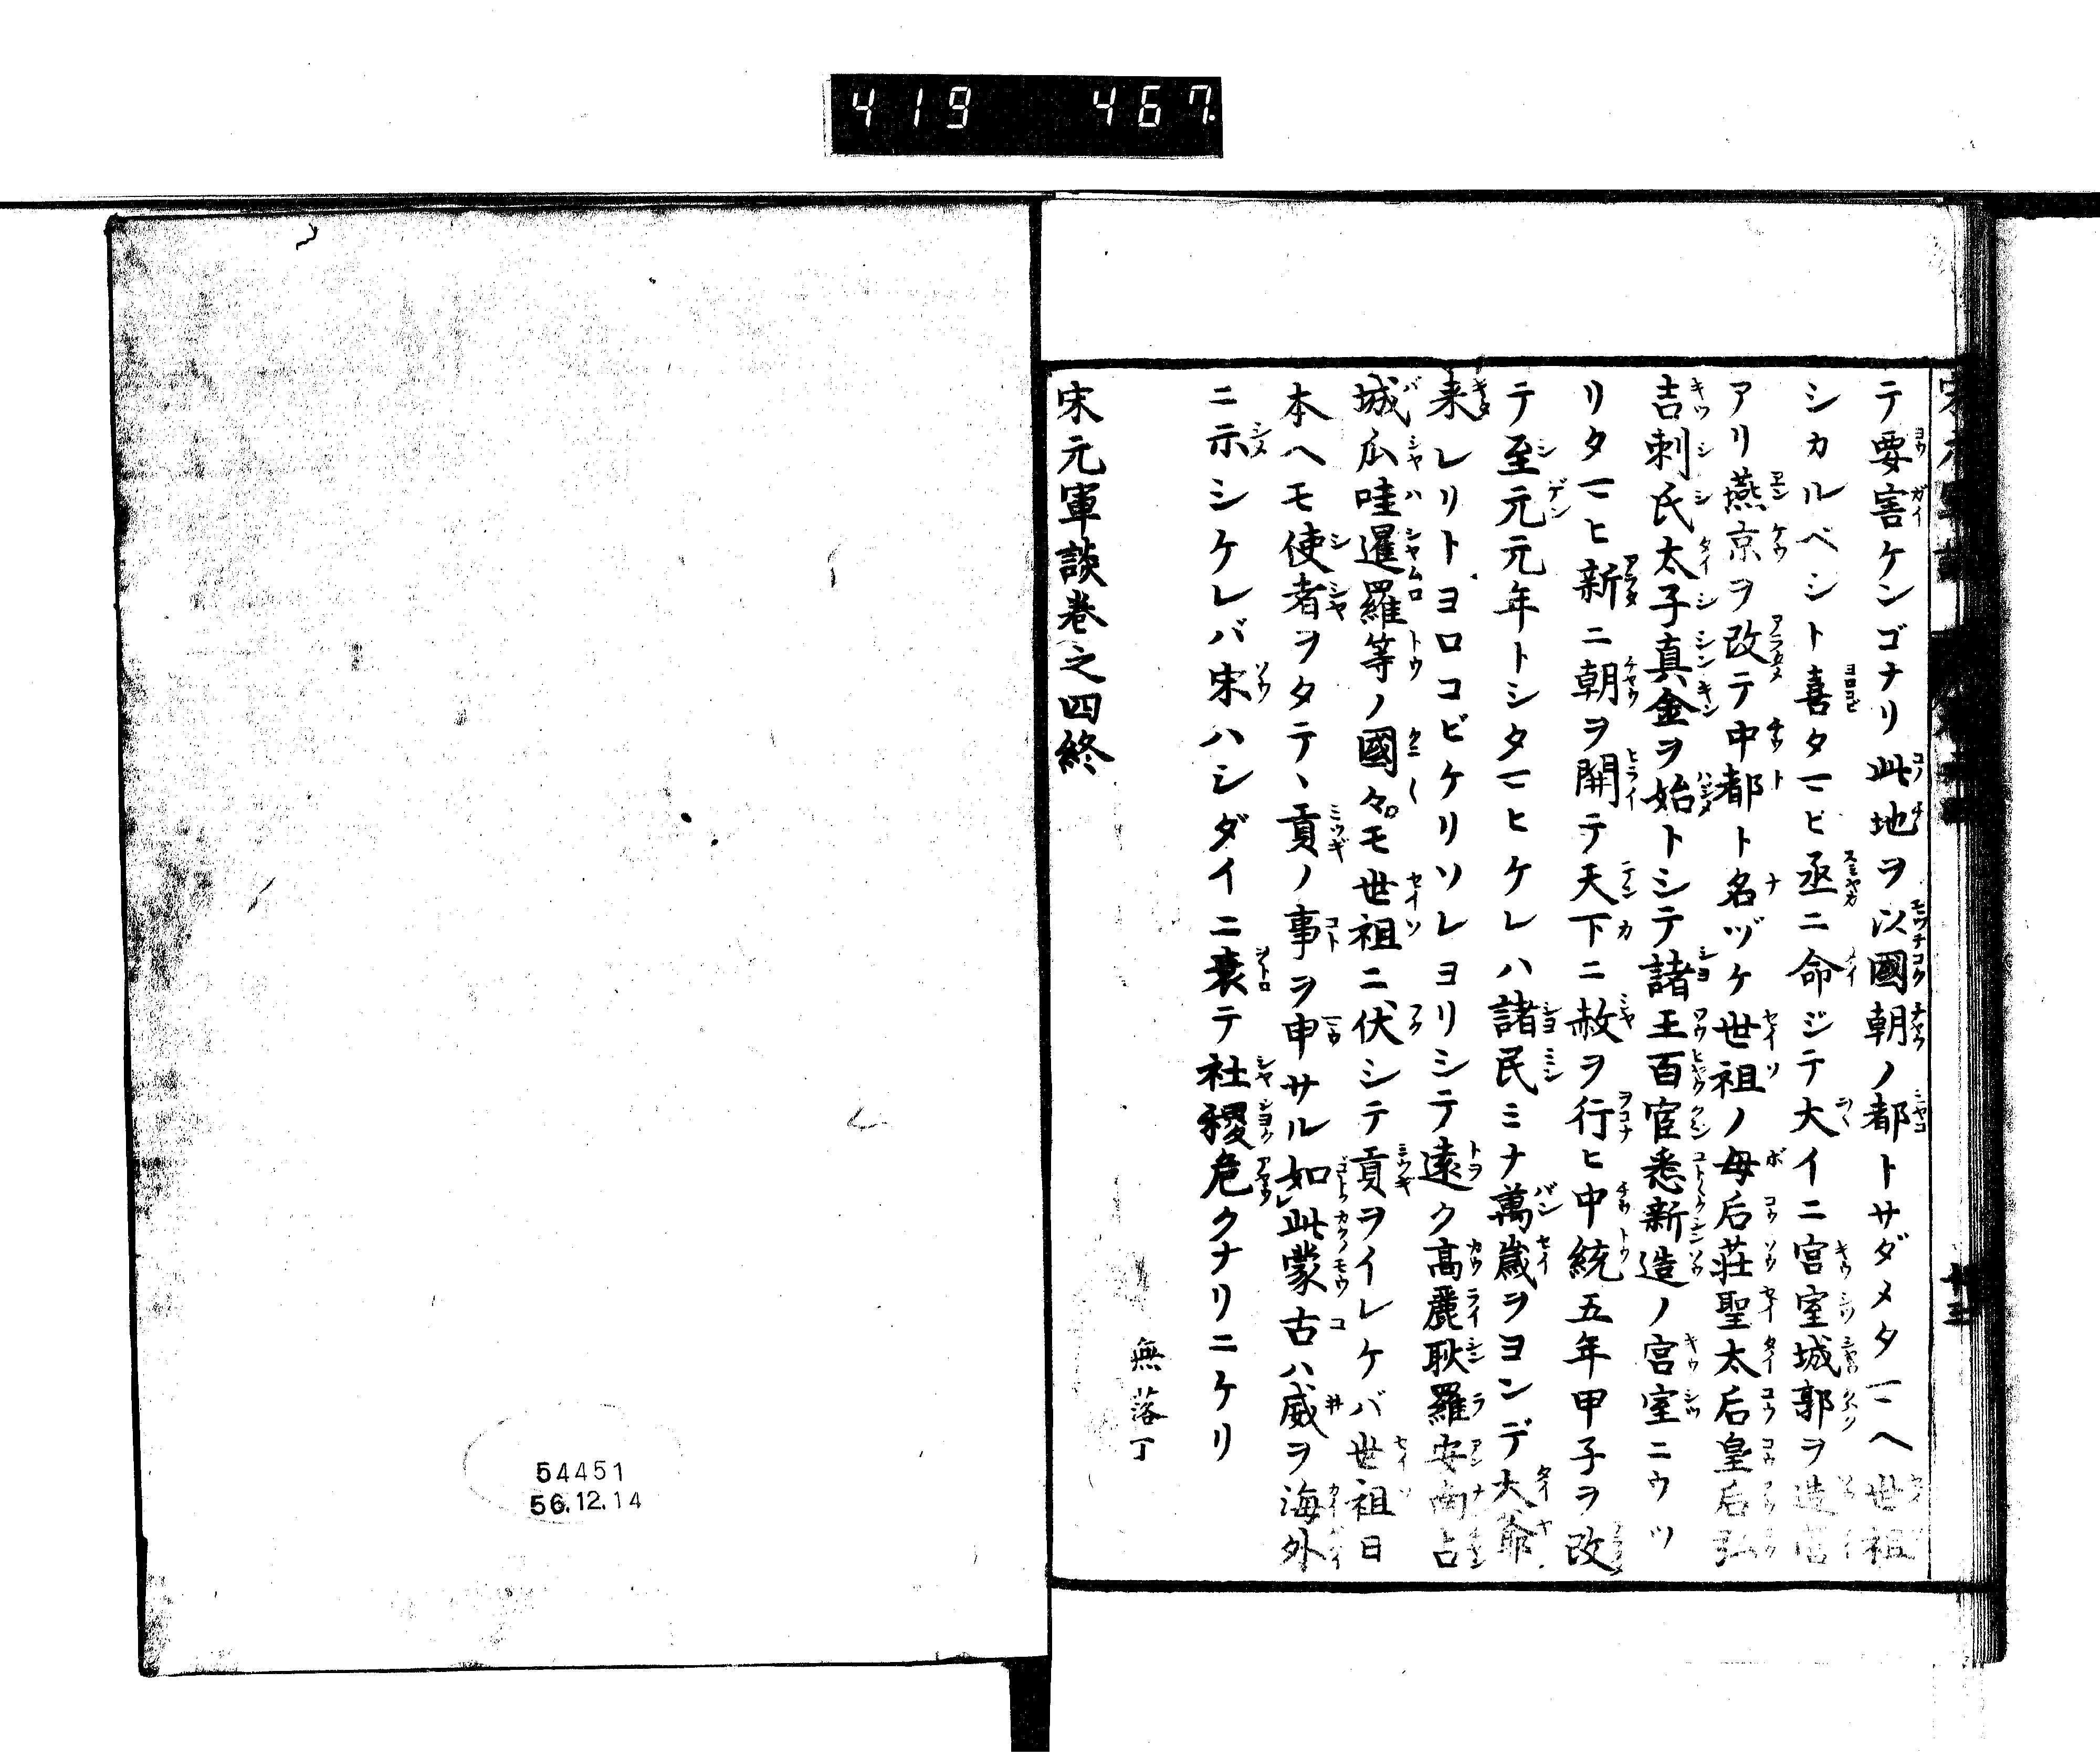 419 467.
テ要害ケンゴナリ此地ヲ以國朝ノ都トサダメタマヘ世祖
シカルベシト喜タマヒ丞ニ命ジテ大イニ宮室城郭ヲ造営
アリ燕京ヲ改テ中都ト名ヅケ世祖ノ母后荘聖太后皇后弘
吉刺氏太子真金ヲ始トシテ諸王百官悉新造ノ宮室ニウツ
リタマヒ新ニ朝ヲ開テ天下ニ赦ヲ行ヒ中統五年甲子ヲ改
テ至元元年トシタマヒケレハ諸民ミナ萬歳ヲヨンデ大爺
来レリトヨロコビケリソレヨリシテ遠ク高麗耿羅安南占
城瓜哇暹羅等ノ國々モ世祖ニ伏シテ貢ヲイレケバ世祖日
本ヘモ使者ヲタテヽ貢ノ事ヲ申サル如此蒙古ハ威ヲ海外
ニ示シケレバ宋ハシダイニ衰テ社稷危クナリニケリ
無落丁
宋元軍談巻之四終
54451
56.12.14